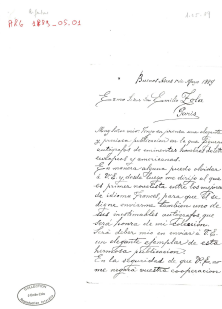 ARG 1889_05.01
Buenos Aires 1º de Mayo 1889
Señor Don Emilio Zola
Paris
Muy Señor mio: Tengo en prensa una elegante
y preciosa publicacion en la que figuran
autógrafos de eminentes hombres de letras
europeos y americanos.
En manera alguna puedo olvidar
á V. y desde luego me dirijo al que
es primer novelista entre los mejores
de idioma Frances, para que si se
digna enviarme tambien uno de
sus inestimables autógrafos que
será honra de mi coleccion.
Será deber mio en enviar á V.
un elegante ejemplar de esta
hermosa publicacion.
En la seguridad de que V. no
me negará vuestra cooperacion
COLLECTION